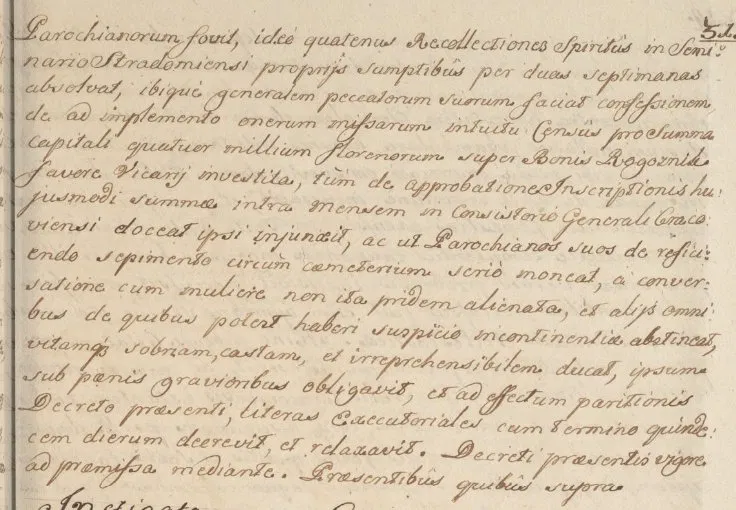 51.
Parochianorum fovit, ideò quatenus Recollectiones Spiritûs in Semi:
nario Stradomiensi proprijs sumptibûs per duas septimanas
absolvat, ibique generalem peccatorum suorum faciat confessionem,
de ad implemento onerum missarum intuitu Censûs pro Summa
capitali quatuor millium florenorum super Bonis Rogoznik
favore Vicarij investita, tùm de approbatione Inscriptionis hu:
jusmodi summæ intra mensem in Consistorio Generali Craco:
viensi doceat ipsi injunxit, ac ut Parochianos suos de refici:
endo sepimento circùm cæmeterium seriò moneat, à conver:
satione cum muliere non ita pridem alienata, et alijs omni:
bus de quibus potest haberi suspicio incontinentiæ abstineat,
vitamq; sobriam, castam, et irreprehensibilem ducat, ipsum
sub pænis gravioribus obligavit, et ad effectum paritionis
Decreto præsenti, literas Executoriales cum termino quinde:
cem dierum decrevit, et relaxavit. Decreti præsentis vigore
ad præmissa mediante. Præsentibûs quibûs supra